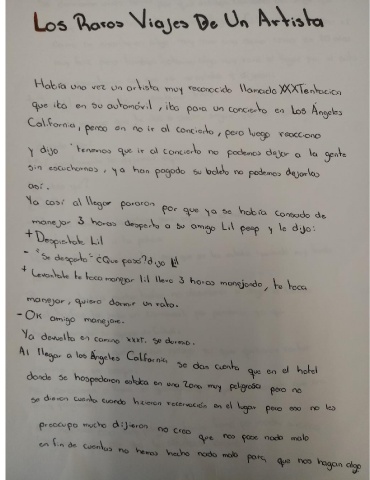 Los Raros Viajes De Un Artista
Había una vez un artista muy reconocido llamado XXXTentacion
que iba en su automóvil, iba para un concierto en Los Ángeles
California, penso en no ir al concierto, pero luego reacciono
y dijo "tenemos que ir al concierto no podemos dejar a la gente
sin escucharnos, ya han pagado su boleto no podemos dejarlos
asi.
Ya casi al llegar pararon por que ya se había cansado de
manejar 3 horas desperto a su amigo Lil peep y le dijo:
+ Despiertate Lil
- "Se desperto" ¿Que paso? dijo lil
+ Levantate te toca manejar lil llevo 3 horas manejando, te toca
manejar, quiero dormir un rato.
- OK amigo manejare.
Ya devuelta en camino xxxt. se durmio.
Al llegar a los Ángeles California se dan cuenta que en el hotel
donde se hospedaron estaba en una zona muy peligrosa pero no
se dieron cuenta cuando hicieron reservación en el lugar pero eso no les
preocupo mucho dijieron no creo que nos pase nada malo
en fin de cuentas no hemos hecho nada malo para que nos hagan algo